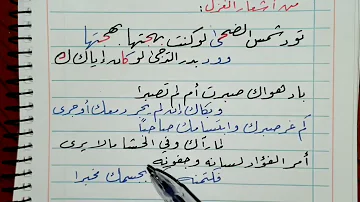 من أشعار الغزل :
تود شمس الضحى لو كنت بهجتها بهجتها
وود بدر الدجى لو كان إياك
باد هواك صبرت أم لم تصبرا
وبكاك إن لم يجر دمعك أو جرى
كم غر صبرك وابتسامك صاحبًا
لما رآك وفي الحشا ما لا يرى
أمر الفؤاد لسانه وجفونه
فكتمنه بجسمك مخبرا